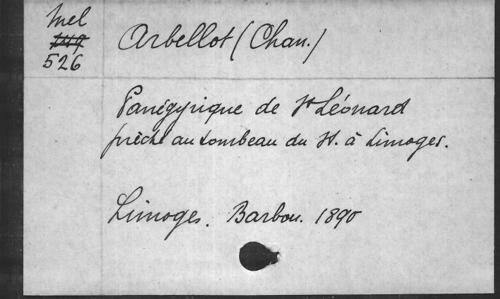 Mel
149
526
Arbellot (Chan.)
Panégyrique de St Léonard
prêché au tombeau du St. à Limoges.
Limoges. Barbou. 1890